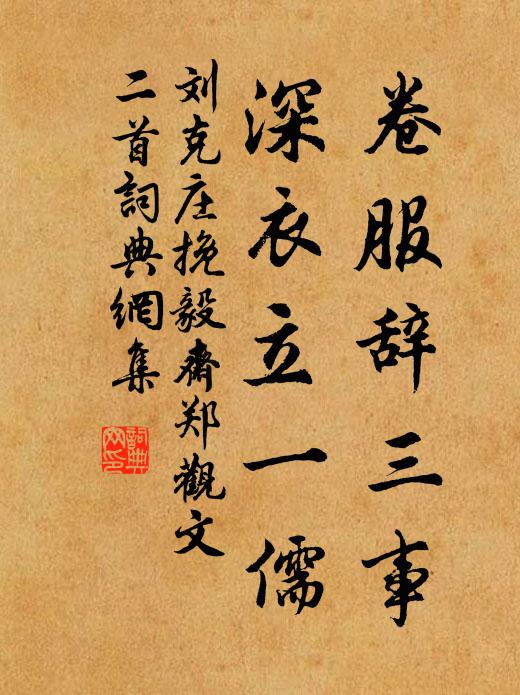 卷服辞三事
深衣立一儒
刘克庄挽毅斋郑觀文
二首詞典網集
詞典網印